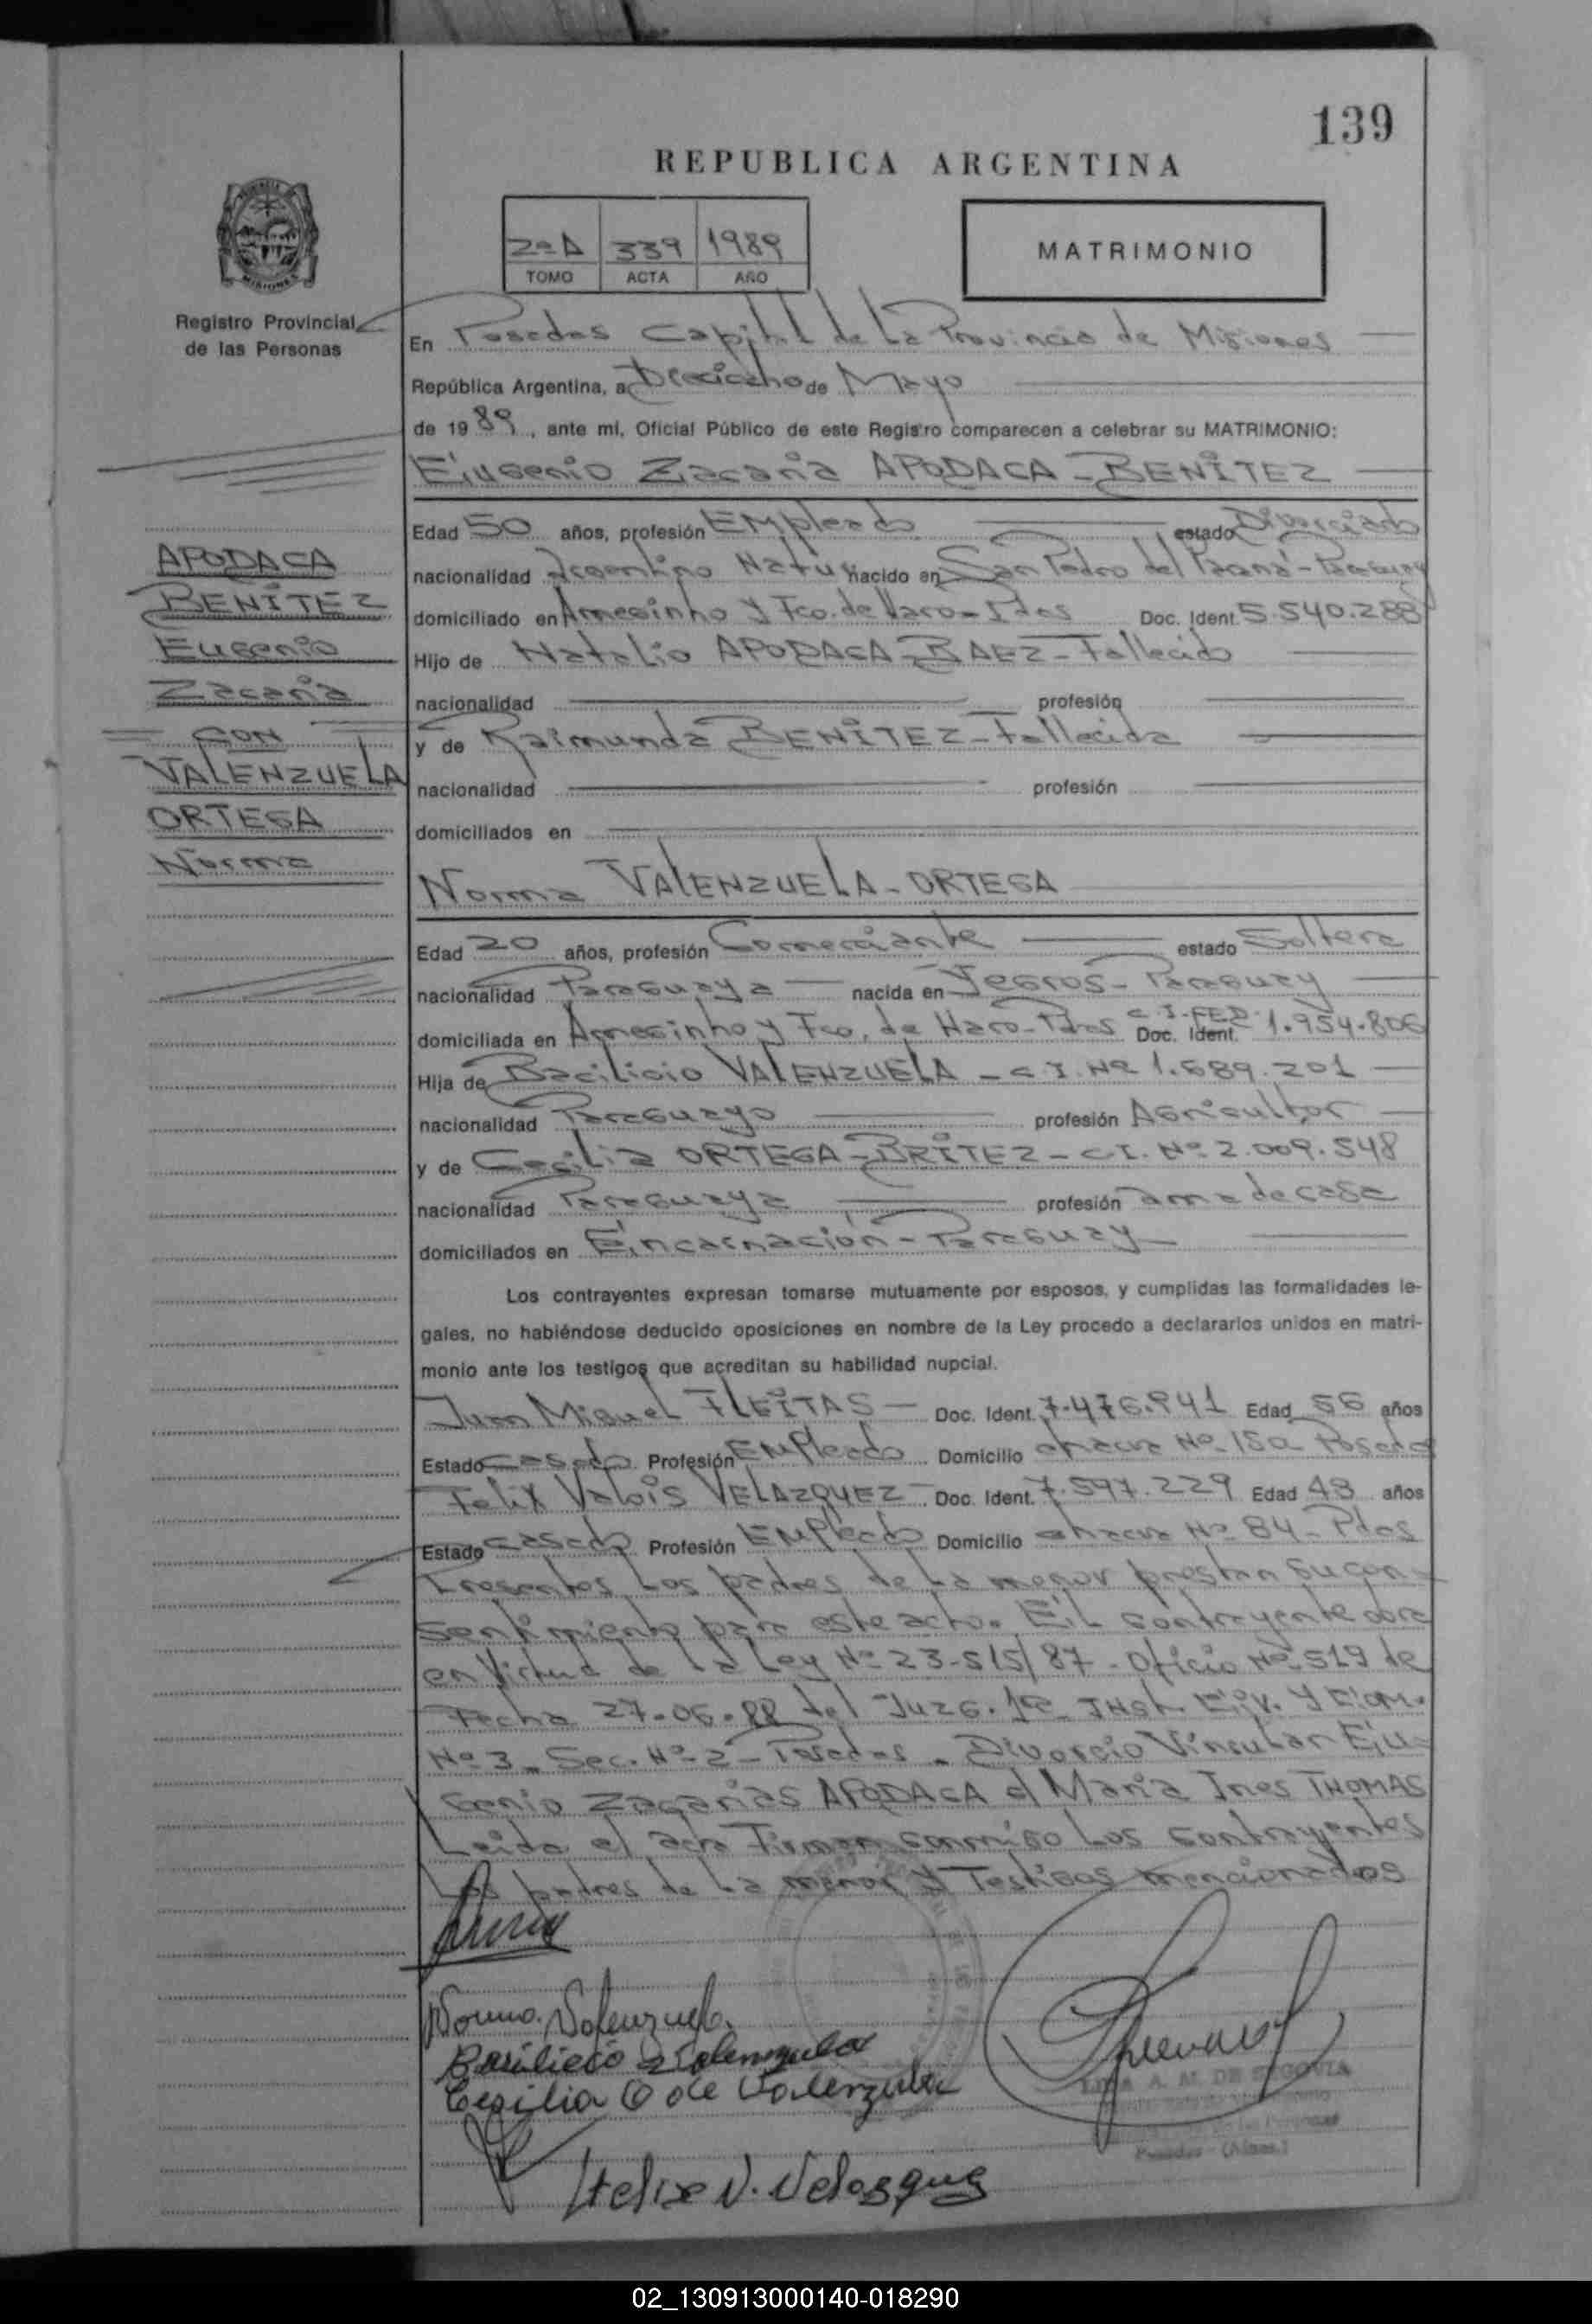 139
REPUBLICA ARGENTINA
2º A 339 1989
TOMO ACTA AÑO
MATRIMONIO
Registro Provincial
de las Personas
En Posadas Capital de La Provincia de Misiones
República Argentina, a Dieciocho de Mayo
de 1989, ante mi, Oficial Público de este Registro comparecen a celebrar su MATRIMONIO:
Eugenio Zacaria APODACA - BENITEZ
Edad 50 años, profesión Empleado estado Divorciado
nacionalidad Argentino Natu nacido en San Pedro del Paraná - Paraguay
domiciliado en Ameginho y Fco. de Haro - Pdas Doc. Ident. 5.540.288
Hijo de Natalio APODACA - BAEZ - Fallecido
nacionalidad profesión
y de Raimunda BENITEZ - Fallecida
nacionalidad profesión
domiciliados en
Norma VALENZUELA - ORTEGA
Edad 20 años, profesión Comerciante estado Soltera
nacionalidad Paraguaya nacida en Yegros - Paraguay
domiciliada en Ameginho y Fco. de Haro - Pdas C.I. FED. Doc. Ident. 1.954.806
Hija de Bacilicio VALENZUELA - C.I. Nº 1.689.201
nacionalidad Paraguayo profesión Agricultor
y de Cecilia ORTEGA - BRITEZ - C.I. Nº 2.009.548
nacionalidad Paraguaya profesión ama de casa
domiciliados en Encarnación - Paraguay
Los contrayentes expresan tomarse mutuamente por esposos, y cumplidas las formalidades le-
gales, no habiéndose deducido oposiciones en nombre de la Ley procedo a declararlos unidos en matri-
monio ante los testigos que acreditan su habilidad nupcial.
Juan Miguel FLEITAS - Doc. Ident. 7.476.941 Edad 56 años
Estado casado Profesión Empleado Domicilio chacra Nº 150 Posadas
Felix Valois VELAZQUEZ - Doc. Ident. 7.597.229 Edad 43 años
Estado casado Profesión Empleado Domicilio chacra Nº 84 - Pdas
Presentes Los padres de La menor prestan su con-
sentimiento para este acto. El contrayente obra
en Virtud de La Ley Nº 23-515/87 - Oficio Nº 519 de
Fecha 27-06-88 del Juzg. 1ª Inst. Civ. y Com.
Nº 3 - Sec. Nº 2 - Posadas - Divorcio Vinsular Eu-
genio Zacarias APODACA c/ Maria Ines THOMAS
Leida el acta Firman conmigo Los contrayentes
Los padres de La menor y Testigos mencionados
Norma Valenzuela
Basilicio Valenzuela
Cecilia O de Valenzuela
Felix V. Velasquez
LIDIA A. M. DE SEGOVIA
Posadas - (Mnes.)
APODACA
BENITEZ
Eugenio
Zacaria
CON
VALENZUELA
ORTEGA
Norma
02_130913000140-018290